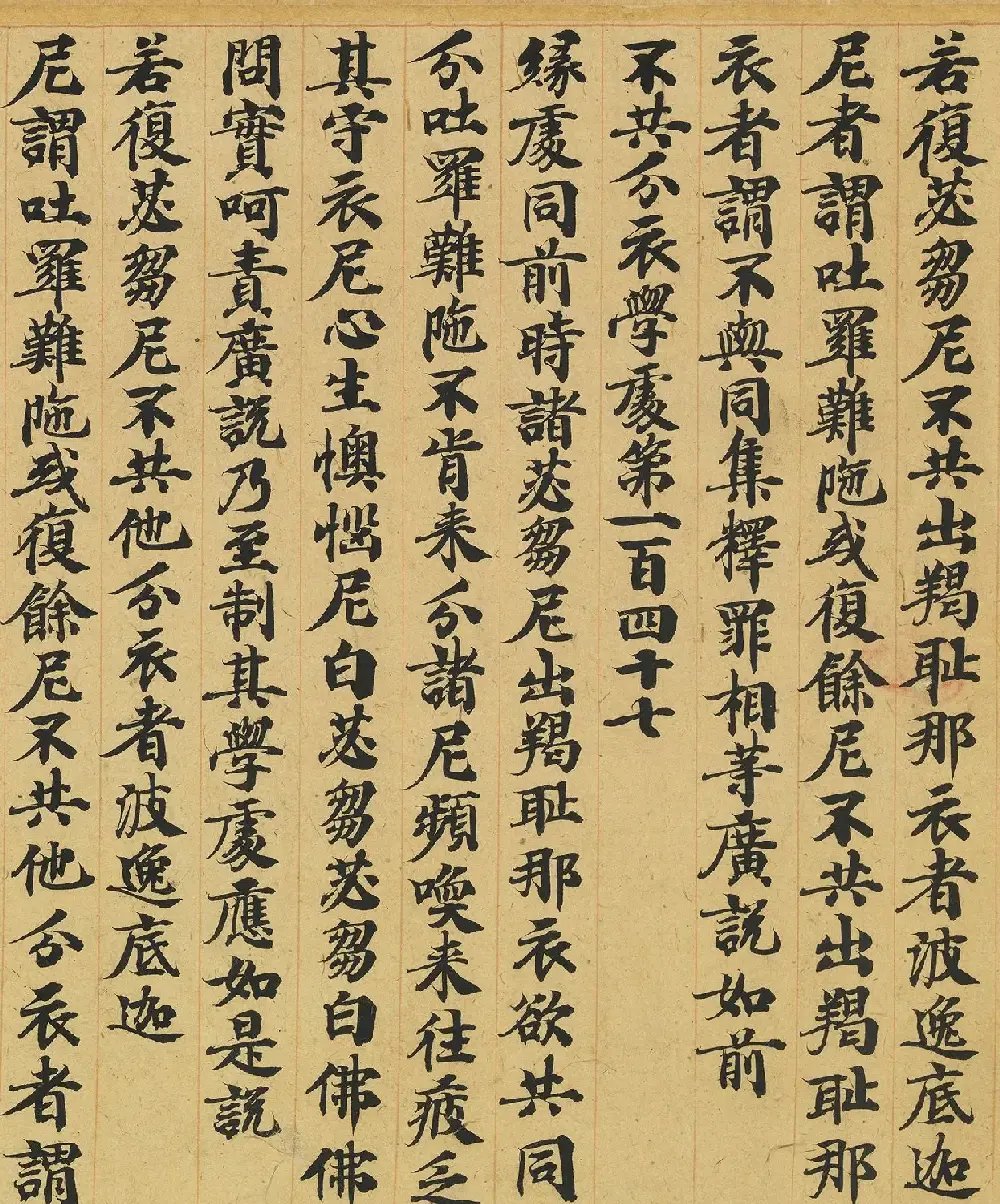 若復苾芻尼不共出羯耻那衣者波逸底迦
尼者謂吐羅難陁或復餘尼不共出羯耻那
衣者謂不與同集釋罪相等廣說如前
不共分衣學處第一百四十七
緣處同前時諸苾芻尼出羯耻那衣欲共同
分吐羅難陁不肯来分諸尼頻喚来往疲乏
其守衣尼心生懊惱尼白苾芻苾芻白佛佛
問實呵責廣說乃至制其學處應如是說
若復苾芻尼不共他分衣者波逸底迦
尼謂吐羅難陁或復餘尼不共他分衣者謂